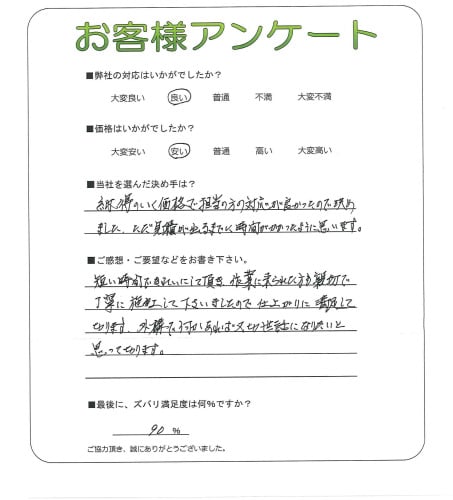 お客様アンケート
■弊社の対応はいかがでしたか?
大変良い 良い 普通 不満 大変不満
■価格はいかがでしたか?
大変安い 安い 普通 高い 大変高い
■当社を選んだ決め手は?
納得のいく価格で担当の方の対応が良かったので決め
ました。ただ見積が出るまでに時間がかかったように思います。
■ご感想・ご要望などをお書き下さい。
短い時間できれいにして頂き、作業に来られた方も親切で
丁寧に施工して下さいましたので仕上がりに満足して
おります。外構で何かあれば又お世話になりたいと
思っております。
■最後に、ズバリ満足度は何%ですか?
90 %
ご協力頂き、誠にありがとうございました。